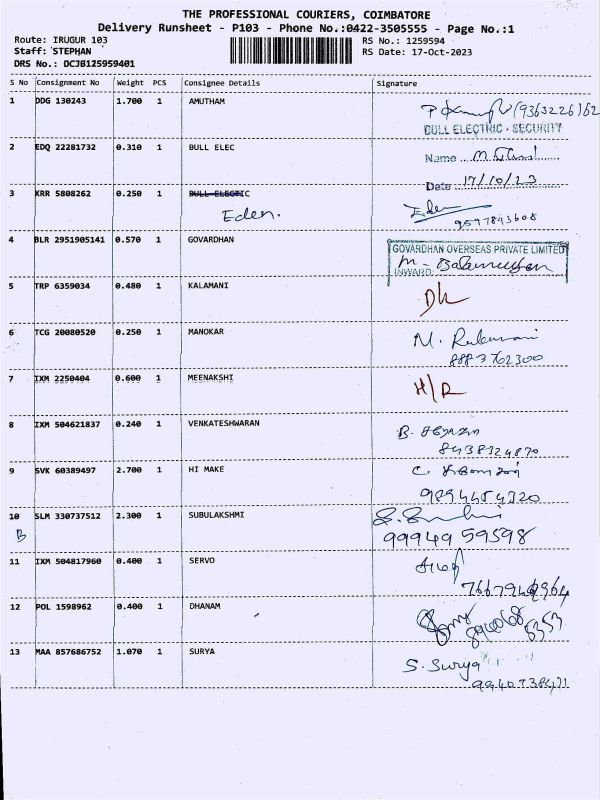 THE PROFESSIONAL COURIERS, COIMBATORE
Delivery Runsheet - P103 - Phone No.:0422-3505555 - Page No.:1
Route: IRUGUR 103 RS No.: 1259594
Staff: STEPHAN RS Date: 17-Oct-2023
DRS No.: DCJB125959401
S No Consignment No Weight PCS Consignee Details Signature
1 DDG 130243 1.700 1 AMUTHAM
BULL ELECTRIC - SECURITY
2 EDQ 22281732 0.310 1 BULL ELEC
Name
Date 17/10/23
3 KRR 5808262 0.250 1 BULL ELECTIC
Eden. Eden
9597843608
4 BLR 2951905141 0.570 1 GOVARDHAN
GOVARDHAN OVERSEAS PRIVATE LIMITED
INWARD
5 TRP 6359034 0.480 1 KALAMANI
6 TCG 20080520 0.250 1 MANOKAR
8883702300
7 IXM 2250404 0.600 1 MEENAKSHI H/R
8 IXM 504621837 0.240 1 VENKATESHWARAN
8438324870
9 SVK 60389497 2.700 1 HI MAKE
9894484320
10 SLM 330737512 2.300 1 SUBULAKSHMI
B 9994959598
11 IXM 504817960 0.400 1 SERVO
12 POL 1598962 0.400 1 DHANAM
13 MAA 857686752 1.070 1 SURYA
S. Surya